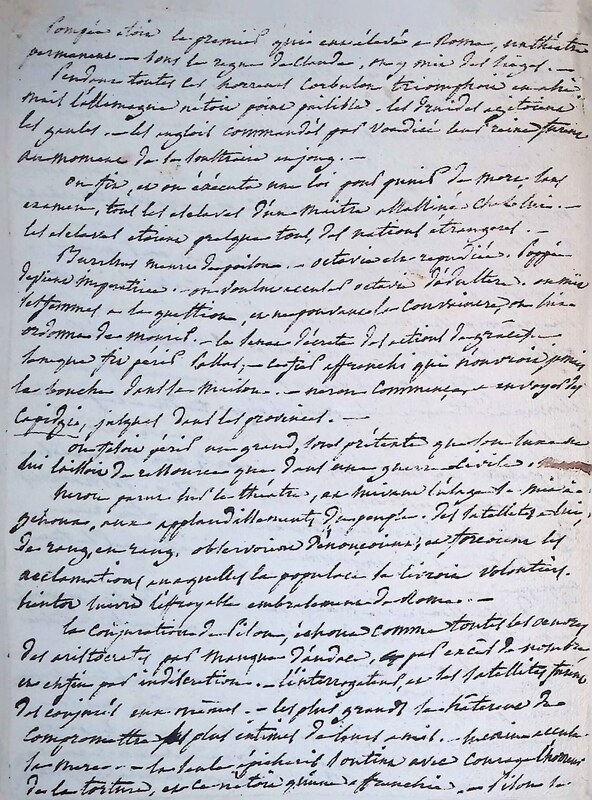 Pompée étoit le premier qui eut élevé a Rome, un théatre
permanent — sous le regne de Claude, on y mit des sieges. —
Pendant toutes ces horreurs Corbulon triomphoit en asie.
mais l'allemagne n'etoit point paisible. les druides agitoient
les gaules. — les anglois commandés par Voadicée leur reine furent
au moment de se soustraire au joug. —
On fit, et on éxécuta une loi pour punir de mort, sans
examen, tous les esclaves d'un maitre assassiné chez lui. —
les esclaves etoient presque tous, des nations étrangeres. —
Burrhus meurt du poison. — octavie est repudiée. Poppée
devient imperatrice. — on voulut accuser octavie d'adultere. on mit
ses femmes a la question, et ne pouvant la convaincre, on lui
ordonna de mourir. — le senat décreta des actions de graces. —
lorsque fit périr Pallas, — cet affranchi qui n'ouvroit point
la bouche dans sa maison. — neron commença a envoyer des
Capidgis, jusques dans les provinces. —
On faisoit périr un grand, sous prétexte que son luxe ne
lui laissoit de ressource que dans une guerre civile.
neron parut sur le théatre, et suivant l'usage se mit a
genoux, aux applaudissements du peuple. des satellites a lui,
de rang en rang, observoient, dénoncoient, et forcoient les
acclamations, auxquelles la populace se livroit volontiers.
bientot suivit l'effroyable embrasement de Rome. —
la conjuration de Pison, échoua comme toutes les oeuvres
des aristocrates par manque d'audace, par excès de nombre
et enfin par indiscretion. — l'interrogateur, et les satellites furent
des conjurés eux mêmes. — les plus grands se hâterent de
compromettre les plus intimes de leurs amis. — lucain accusa
sa mere. — la seule épicharis soutint avec courage l'horreur
de la torture, et ce n'étoit qu'une affranchie. — Pison se